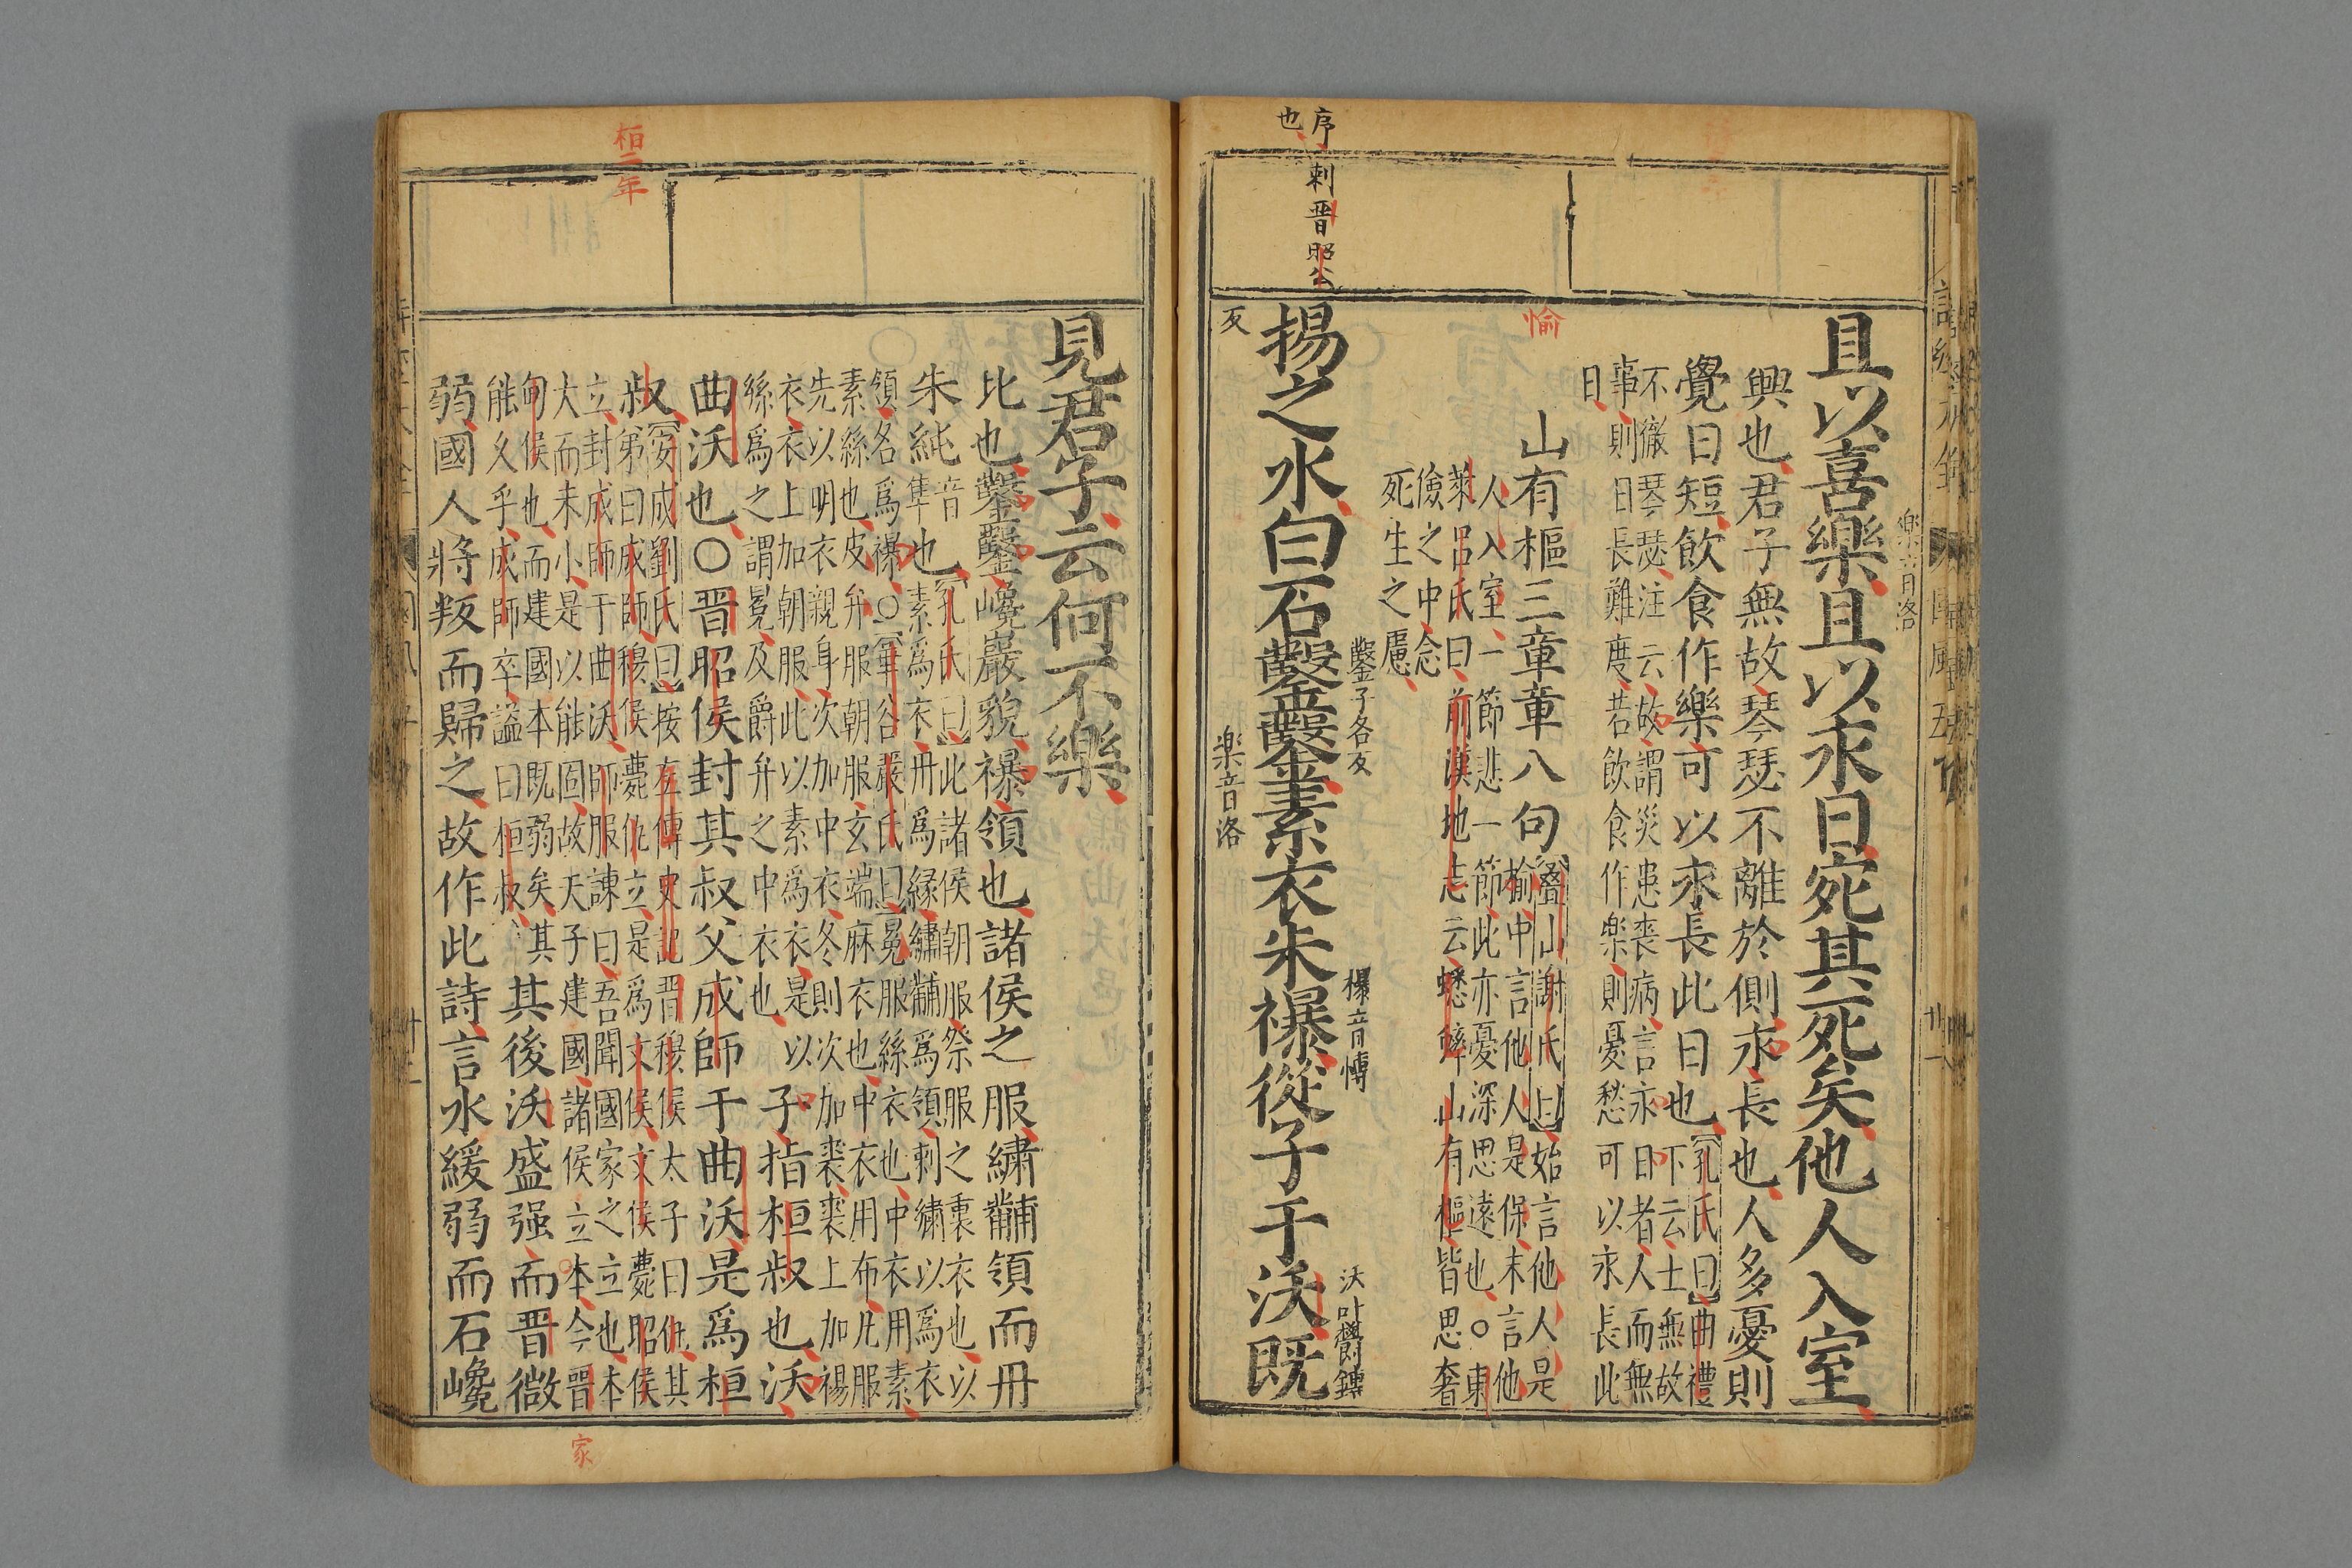 且以喜樂且以永日宛其死矣他人入室
樂音洛
興也君子無故琴瑟不離於側永長也人多憂則
覺日短飲食作樂可以永長此日也
孔氏曰曲禮
下云士無故
不徹琴瑟注云故謂災患喪病言永日者人而無
事則日長難度若飲食作樂則憂愁可以永長此
日
愉
山有樞三章章八句
疊山謝氏曰始言他人是
愉中言他人是保末言他
人入室一節悲一節此亦憂深思遠也○東
萊呂氏曰前漢地志云蟋蟀山有樞皆思奢
儉之中念
死生之慮
序刺晉昭公
也
揚之水白石鑿鑿素衣朱襮從子于沃既
鑿子各反
襮音博
沃叶鬱鏄
反
樂音洛
見君子云何不樂
比也鑿鑿巉巖貌襮領也諸侯之服繡黼領而丹
朱純
音
準
也
孔氏曰此諸侯朝服祭服之裏衣也以
素爲衣丹爲緣繡黼爲領刺繡以爲衣
領各爲襮○華谷嚴氏曰冕服絲衣也中衣用素
素絲也皮弁服朝服玄端麻衣也中衣用布凡服
先以明衣親身次加中衣冬則次加裘裘上加裼
衣衣上加朝服此以素爲衣是以
絲爲之謂冕及爵弁之中衣也
子指桓叔也沃
曲沃也○晉昭侯封其叔父成師于曲沃是爲桓
叔
安成劉氏曰按左傳史記晉穆侯太子曰仇其
弟曰成師穆侯薨仇立是爲文侯文侯薨昭侯
立封成師于曲沃師服諫曰吾聞國家之立也本
大而末小是以能固故天子建國諸侯立家今晉
甸侯也而建國本既弱矣其
能久乎成師卒謚曰桓叔
其後沃盛强而晉微
弱國人將叛而歸之故作此詩言水緩弱而石巉
桓二年
家